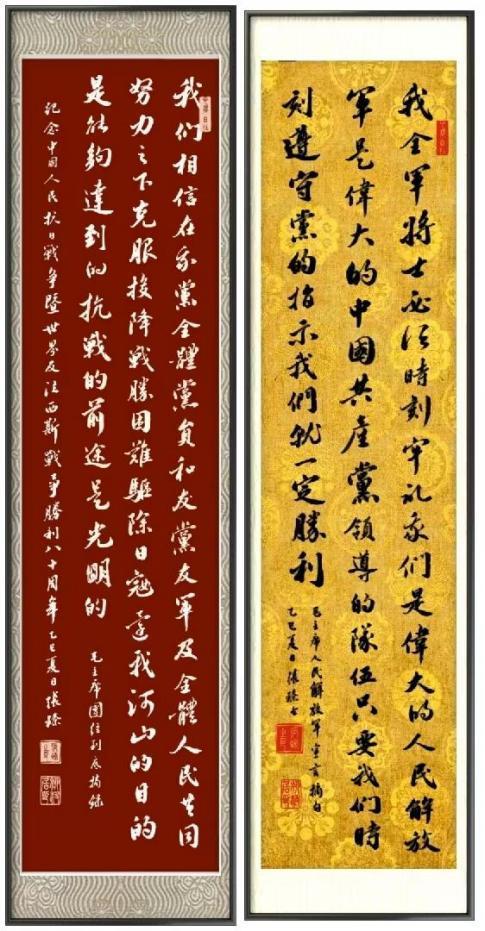 我们相信在我黨全體黨負和友黨友軍及全體人民共同
努力之下克服投降戰勝困難驅除日寇還我河山的目的
是能夠達到的抗戰的前途是光明的
毛主席團结到底摘錄
紀念中國人民抗日戰争暨世界反法西斯戰争勝利八十周年乙巳夏日張臻
我全军将士必须時刻牢记我们是偉大的人民解放
軍是偉大的中國共產黨領導的隊伍只要我们時
刻遵守黨的指示我們就一定勝利
毛主席人民解放軍宣言摘句
乙巳夏日張臻書